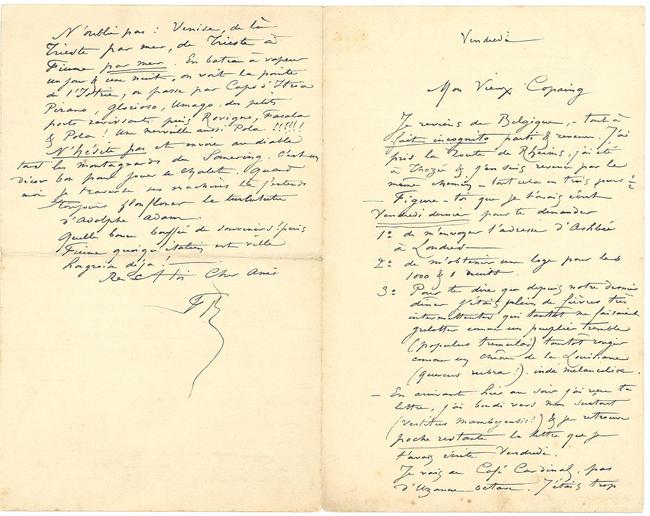 Vendredi
Mon Vieux Copaing
Je reviens de Belgique, - tout à
fait incognito parti & revenu. J'ai
pris la route de Rheims, j'ai été
à Thozée & j'en suis revenu par le
même chemin, - tout cela en trois jours
- Figure-toi que je t'avais écrit
Vendredi dernier pour te demander
1º de m'envoyer l'adresse d'Ashbée
à Londres
2º de m'obtenir une loge pour les
1000 & 1 nuits.
3º Pour te dire que depuis notre dernier
dîner j'étais plein de fièvres très
intermittentes qui tantôt me faisaient
grelotter comme un peuplier tremble
(populus tremulas) tantôt rougir
comme un chêne de la Louisiane
(quercus rubra!). inde mélancolie.
- En arrivant hier au soir j'ai reçu ta
lettre, j'ai bondi vers mon
& je retrouve
poche restante la lettre que je
t'avais écrite Vendredi.
Je vais au Café Cardinal, pas
d'Uzanne octave. J'étais trop
N'oublie pas: Venise, de là
Trieste par mer, de Trieste à
Fiume par mer. En bateau à vapeur
un jour & une nuit, on voit la pointe
de l'Istrie, on passe par Capo d'Istria
Pirano, Umago, des petits
ports ravissants puis Rovigno, Fasana
& Pola! Une merveille aussi Pola !!!!!
N'hésite pas et envoie au diable
tous les montagnards du
dîner bon pour le chalet. Quand
moi je traverse ces machines là j'entends
toujours la turlututu
d'Adolphe Adam.
Quelle bonne bouffée de souvenirs! puis
Fiume quoique italien est ville
hongroise déjà!
à toi Cher Ami